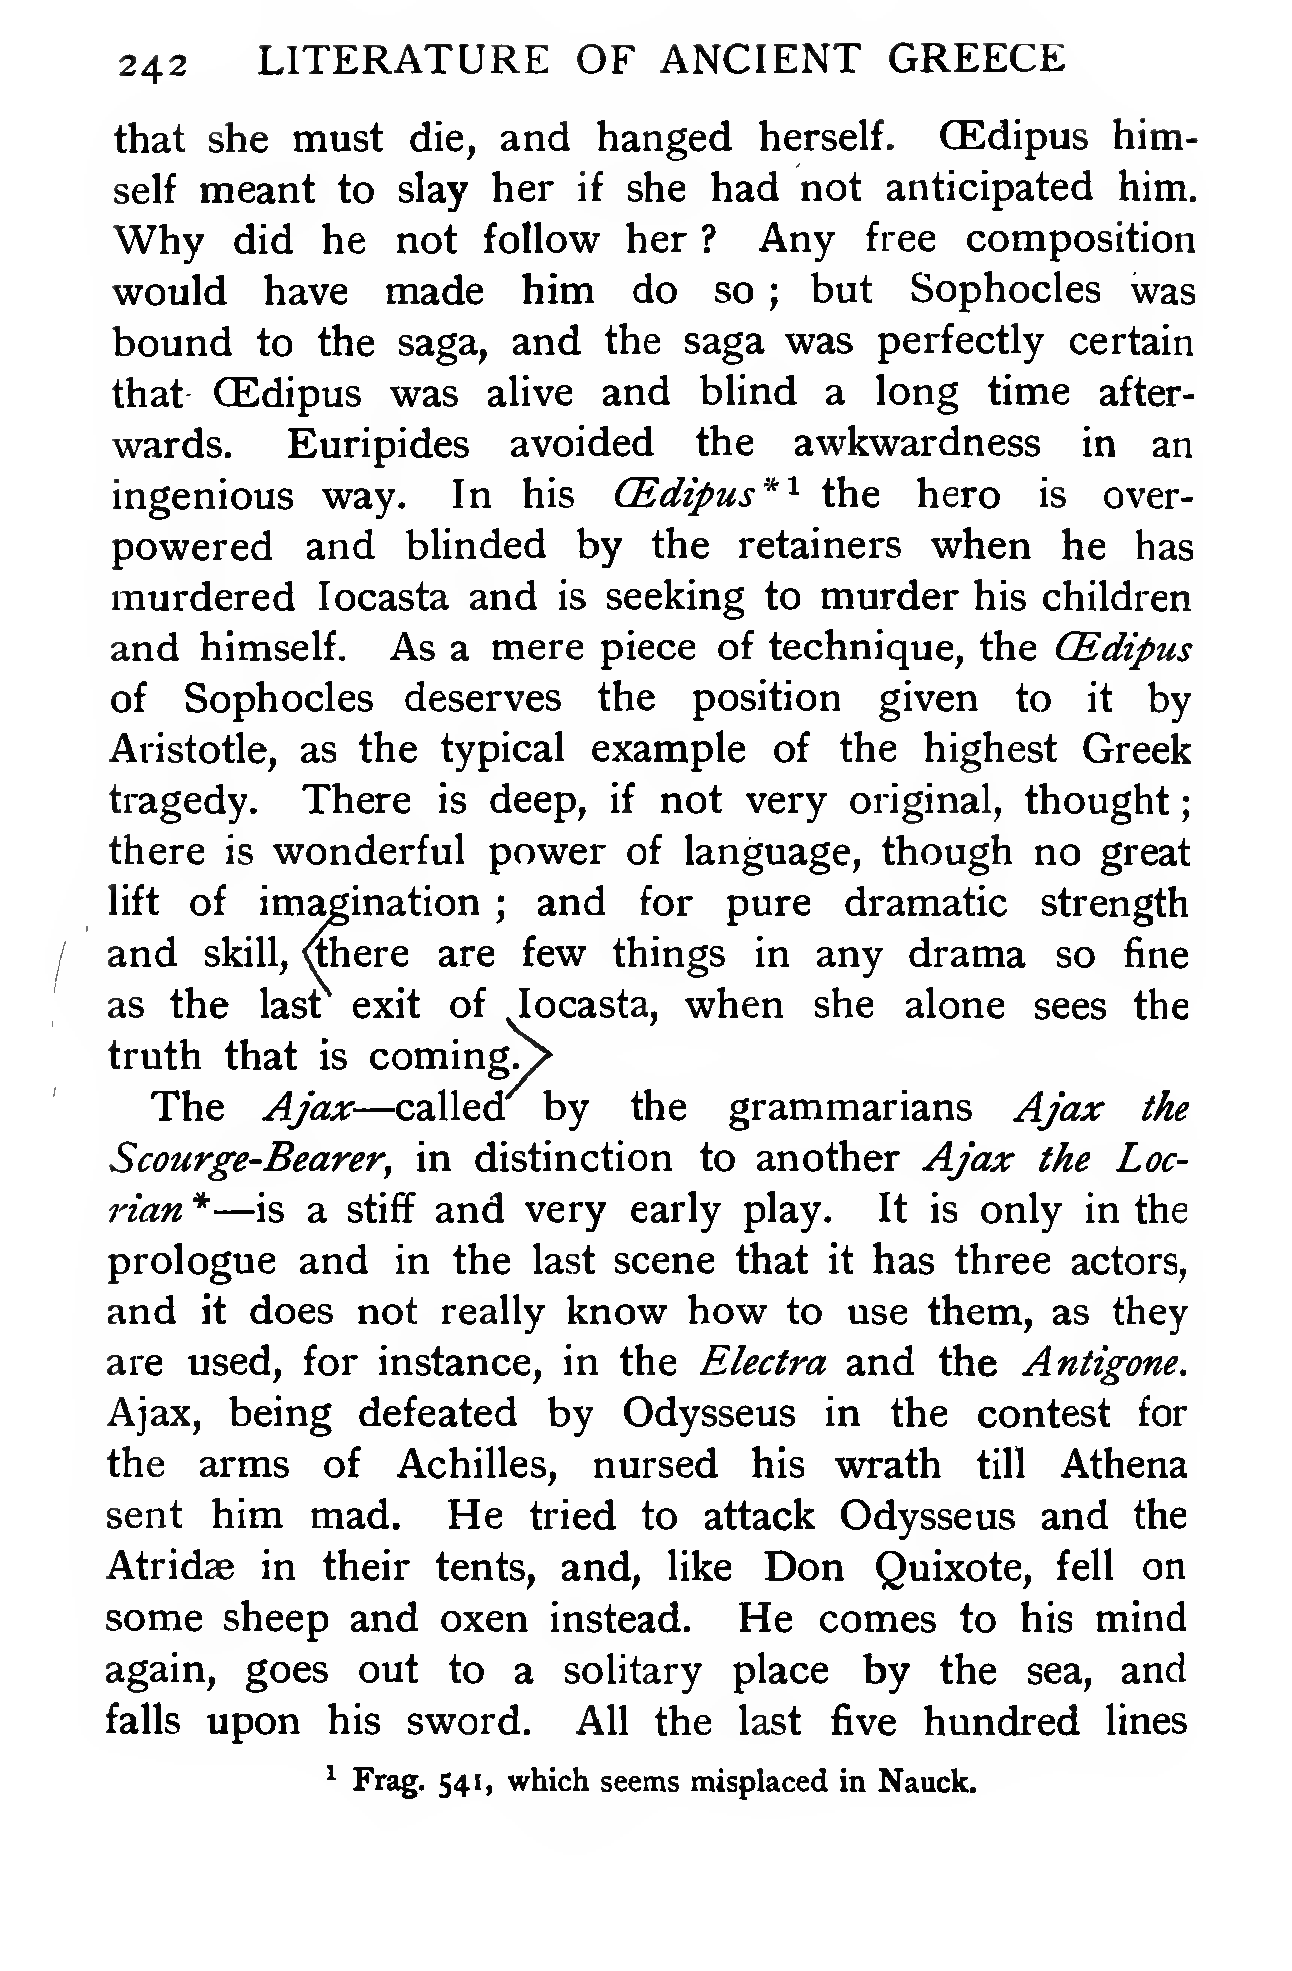 242 LITERATURE OF ANCIENT GREECE
that she must die, and hanged herself. Œdipus him-
self meant to slay her if she had not anticipated him.
Why did he not follow her ? Any free composition
would have made him do so ; but Sophocles was
bound to the saga, and the saga was perfectly certain
that Œdipus was alive and blind a long time after-
wards. Euripides avoided the awkwardness in an
ingenious way. In his Œdipus*¹ the hero is over-
powered and blinded by the retainers when he has
murdered Iocasta and is seeking to murder his children
and himself. As a mere piece of technique, the Œdipus
of Sophocles deserves the position given to it by
Aristotle, as the typical example of the highest Greek
tragedy. There is deep, if not very original, thought ;
there is wonderful power of language, though no great
lift of imagination ; and for pure dramatic strength
and skill, there are few things in any drama so fine
as the last exit of Iocasta, when she alone sees the
truth that is coming.
The Ajax—called by the grammarians Ajax the
Scourge-Bearer, in distinction to another Ajax the Loc-
rian *—is a stiff and very early play. It is only in the
prologue and in the last scene that it has three actors,
and it does not really know how to use them, as they
are used, for instance, in the Electra and the Antigone.
Ajax, being defeated by Odysseus in the contest for
the arms of Achilles, nursed his wrath till Athena
sent him mad. He tried to attack Odysseus and the
Atridæ in their tents, and, like Don Quixote, fell on
some sheep and oxen instead. He comes to his mind
again, goes out to a solitary place by the sea, and
falls upon his sword. All the last five hundred lines
¹ Frag. 541, which seems misplaced in Nauck.